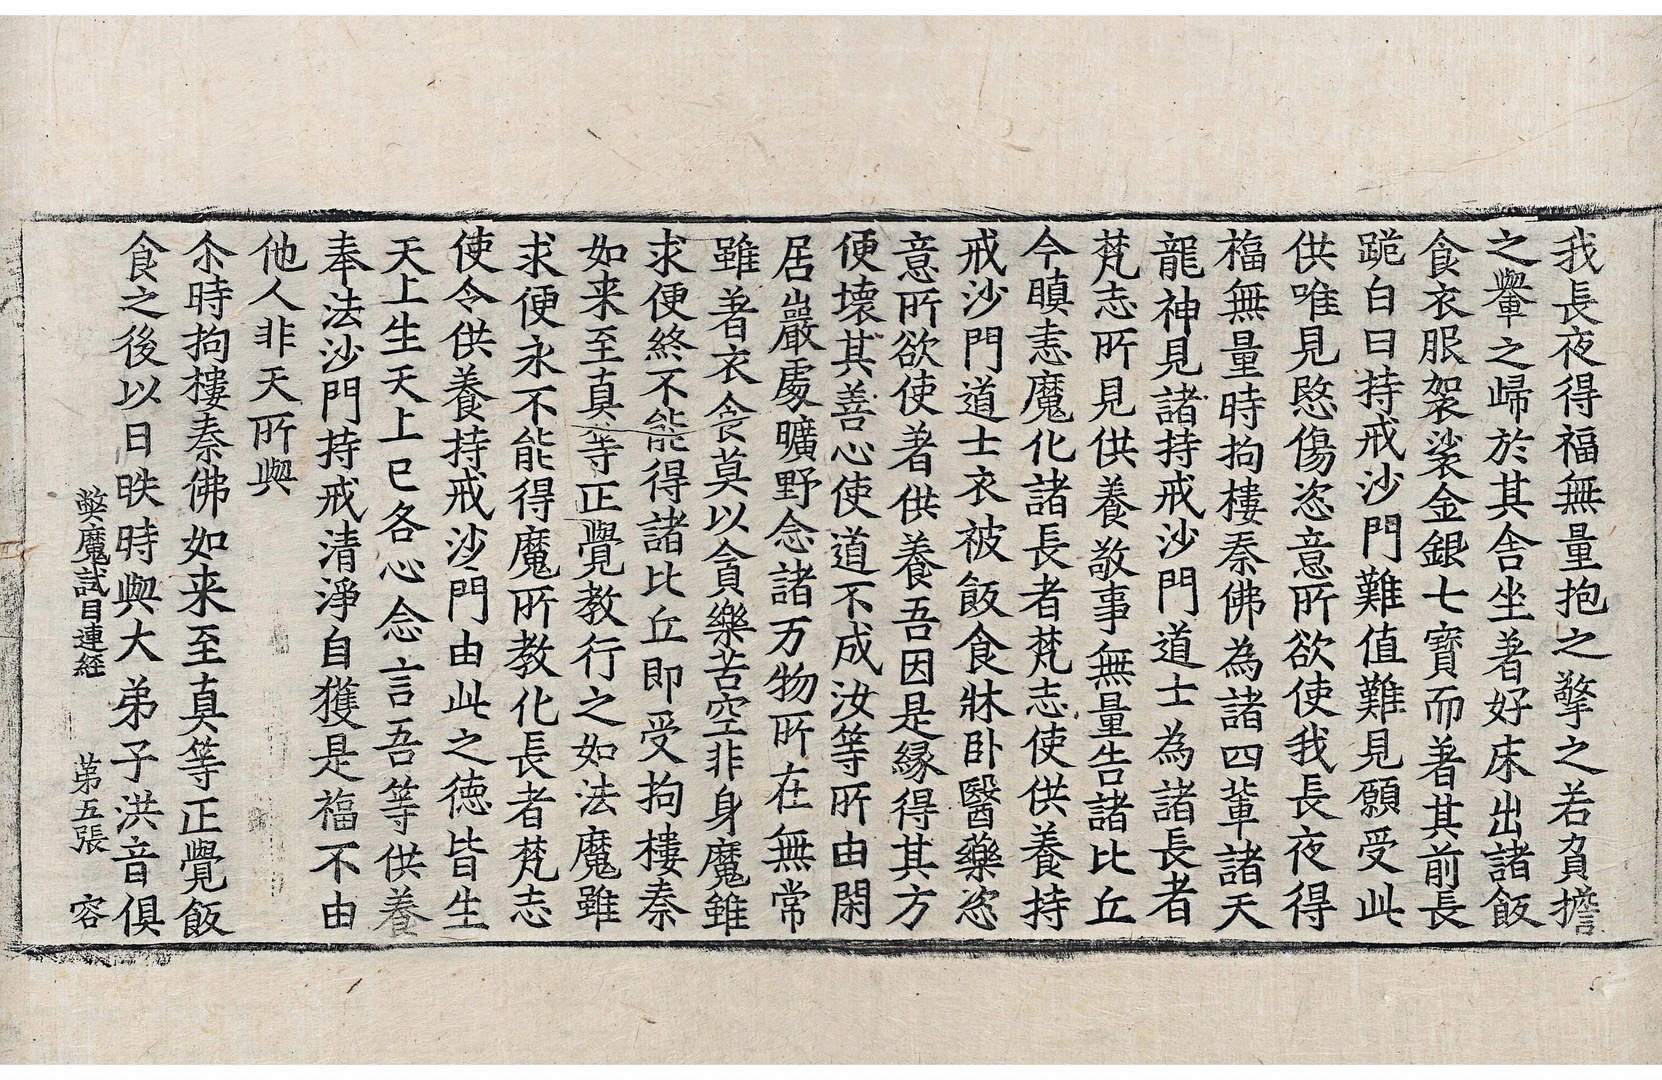 我長夜得福無量抱之擎之若負擔
之轝之歸於其舍坐著好床出諸飯
食衣服袈裟金銀七寶而著其前長
跪白曰持戒沙門難值難見願受此
供唯見愍傷恣意所欲使我長夜得
福無量時拘樓秦佛為諸四軰諸天
龍神見諸持戒沙門道士為諸長者
梵志所見供養敬事無量告諸比丘
今瞋恚魔化諸長者梵志使供養持
戒沙門道士衣被飯食牀卧醫藥恣
意所欲使著供養吾因是緣得其方
便壞其善心使道不成汝等所由閑
居巖處曠野念諸万物所在無常
雖著衣食莫以貪樂苦空非身魔雖
求便終不能得諸比丘即受拘樓秦
如来至真等正覺教行之如法魔雖
求便永不能得魔所教化長者梵志
使令供養持戒沙門由此之徳皆生
天上生天上已各心念言吾等供養
奉法沙門持戒清淨自獲是福不由
他人非天所與
尒時拘樓秦佛如来至真等正覺飯
食之後以日昳時與大弟子洪音俱
弊魔試目連經　第五張　容